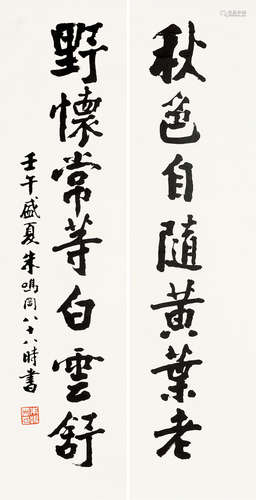 秋色自随黄葉老
野懷常等白雲舒
壬午盛夏朱鳴岡八十八時書